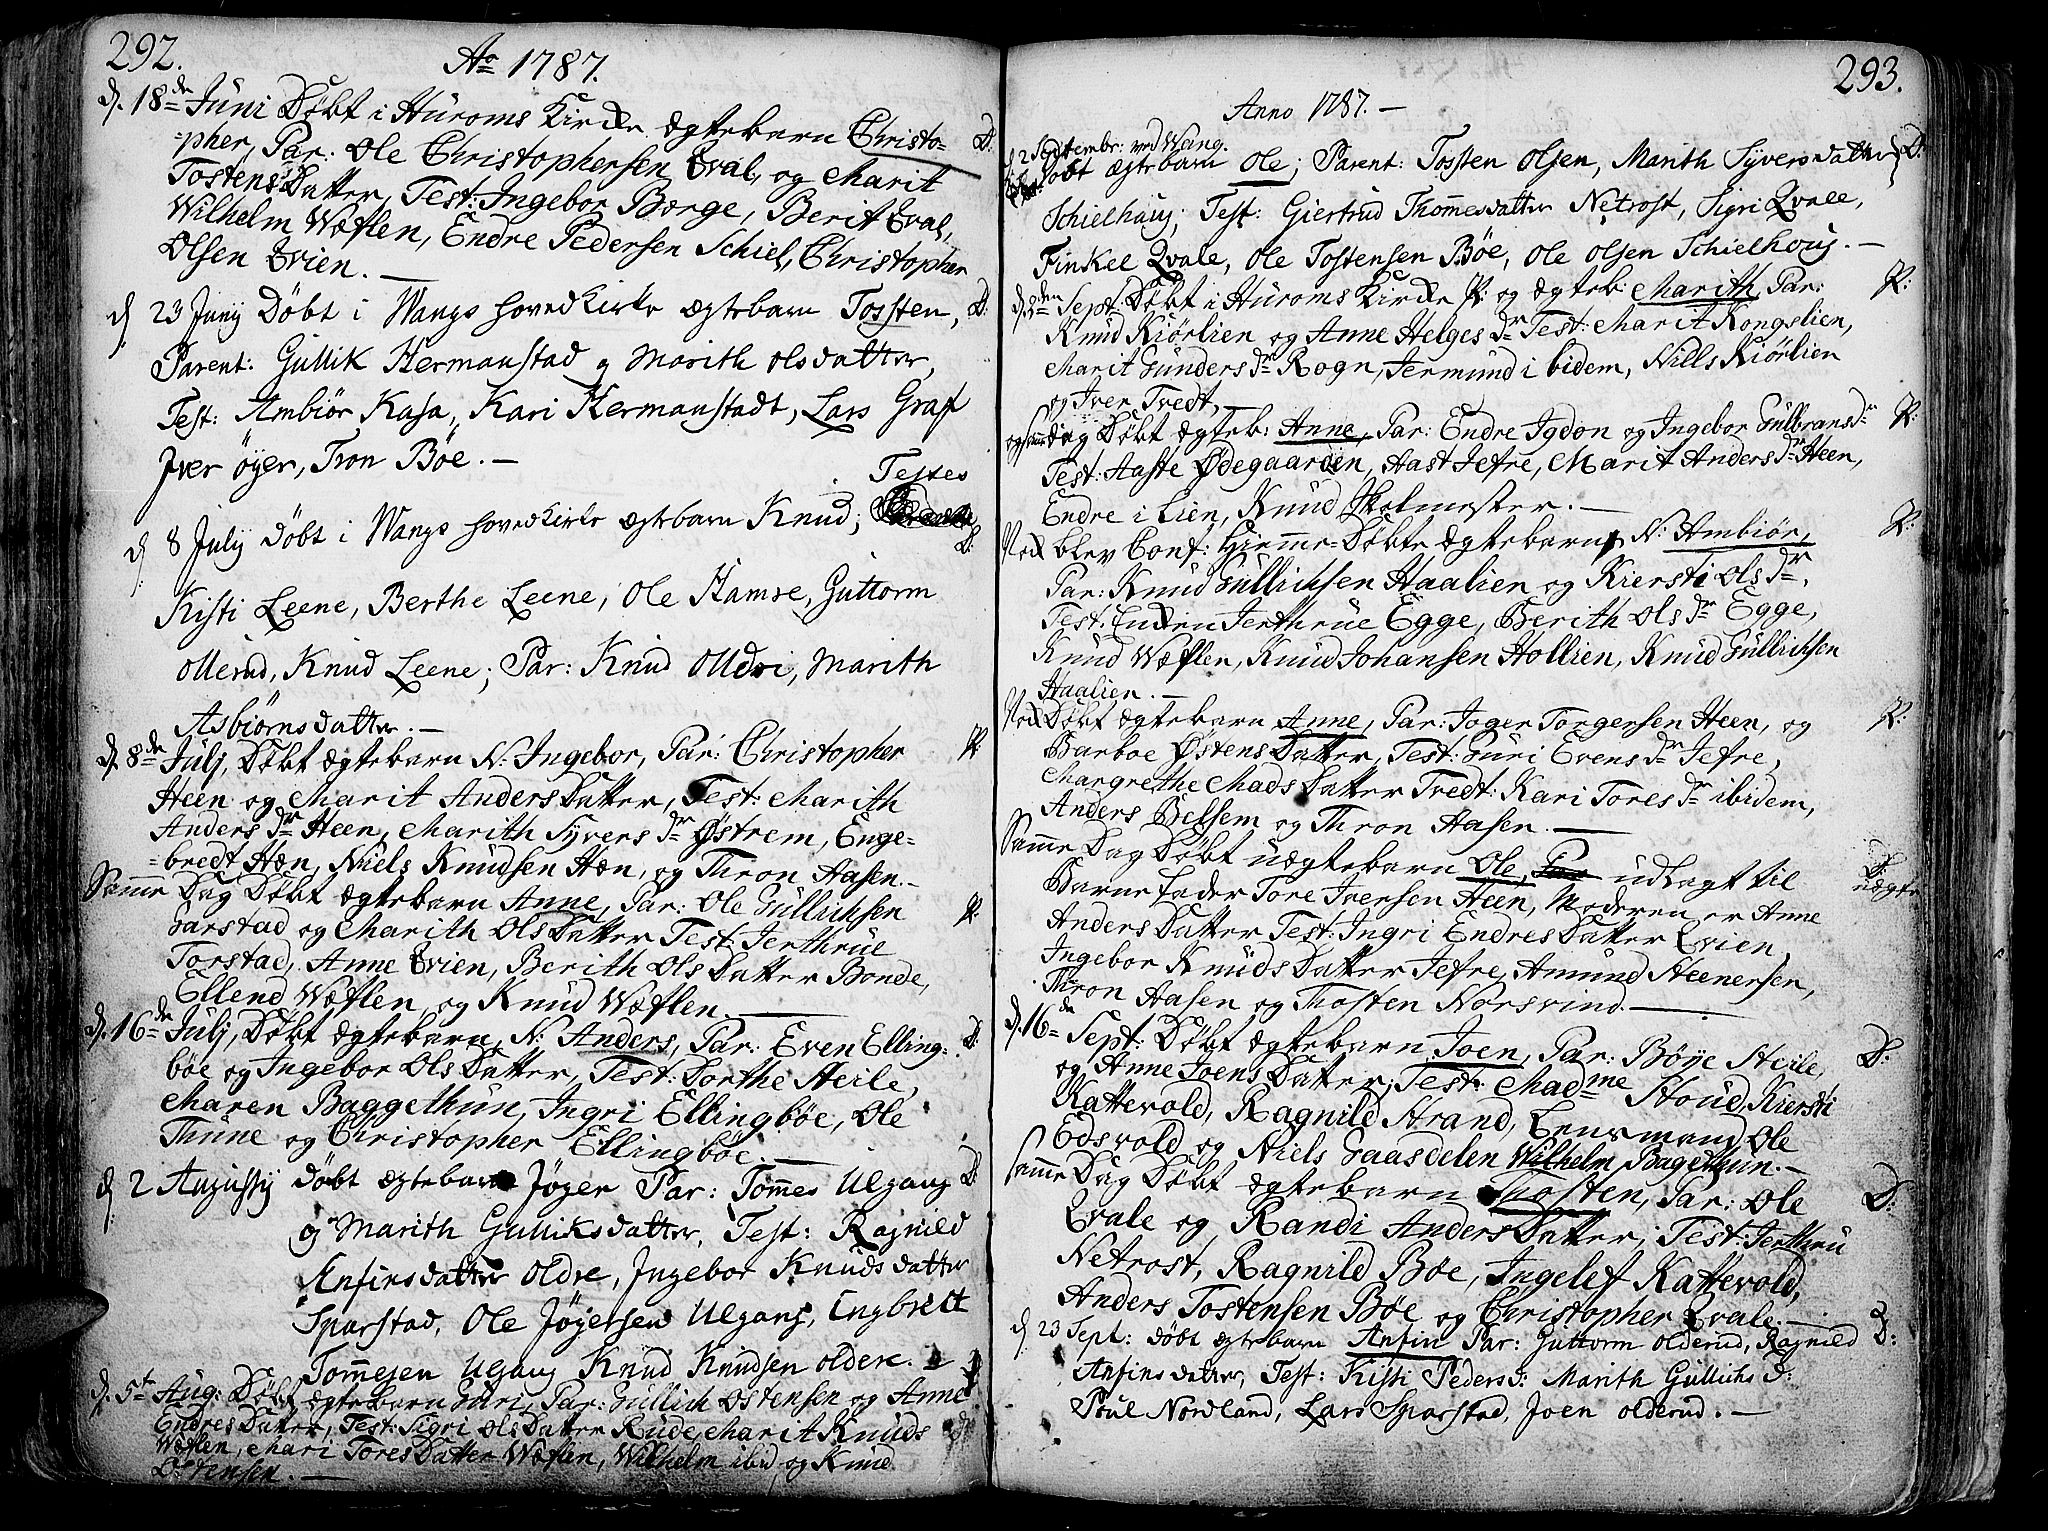 292.
Ao 1787.
d. 18de Juni Døbt i Huroms Kirke ægtebarn Christo= D:
=pher, Par: Ole Christophersen Qval, og Marit
Tostens Datter, Test: Ingebor Børge, Berit Qval,
Wilhelm Wæflen, Endre Pedersen Schiel, Christopher
Olsen Qvien. —
d 23 Junij Døbt i Wangs Hovedkirke ægtebarn Tosten, D:
Parent: Gullik Hermanstad og Marith Olsdatter,
Test: Ambiør Kasa, Kari Hermanstadt, Lars Graf
Iver Øyer, Tron Bøe. —
Testes
d 8 Julij Døbt i Wangs Hovedkirke ægtebarn Knud; D:
Kisti Leene, Berthe Leene, Ole Hamre, Guttorm
Ollerud, Knud Leene; Par: Knud Olldri, Marith
Asbiørnsdatter. —
d. 8de Julj, Døbt ægtebarn N: Ingebor, Par: Christopher P:
Heen og Marit Anders Datter, Test: Marith
Anders dr Heen, Marith Syvers dr Østrem, Enge=
=bredt Hæn, Niels Knudsen Hæn, og Thron Aasen. —
Samme Dag Døbt ægtebarn Anne, Par: Ole Gullichsen P:
Garstad og Marith Ols Datter Test: Jerthrue
Torstad, Anne Qvien, Berith Ols Datter Bonde,
Ellend Wæflen og Knud Wæflen. —
d. 16de Julj, Døbt ægtebarn, N: Anders, Par: Even Elling= D:
bøe og Ingebor Ols Datter, Test: Dorthe Steile,
Maren Baggethun, Ingri Ellingbøe, Ole
Thune og Christopher Ellingbøe. —
d 2 Augustj Døbt ægtebarn Jøger Par: Tommes Ulgang D:
og Marith Gulliksdatter, Test: Ragnild
Anfinsdatter Oldre, Ingebor Knudsdatter
Sparstad, Ole Jøgersen Ulgang, Engbrett
Tommesen Ulgang Knud Knudsen Oldere.
d. 5t Aug: Døbt ægtebarn Guri, Par: Gullich Østensen og Anne
Endres Datter, Test: Sigri Ols Datter Rude, Marit Knuds dr
Wæflen, Mari Tores Datter Wæflen, Wilhelm ibid og Knud
Østensen. —
293.
Anno 1787. —
d 2 Septembr: ved Wang.
Døbt ægtebarn Ole; Parent: Tosten Olsen, Marith Syversdatter D:
Schielhaug; Test: Giertrud Thommesdatter Netrost, Sigri Qvale,
Finkel Qvale, Ole Tostensen Bøe, Ole Olsen Schielhoug. —
d. 9den Sept: Døbt i Huroms Kirke P: og ægteb: Marith, Par: P:
Knud Kiørlien og Anne Helges dr Test: Marit Kongslien,
Marit Gunders dr Rogn, Jermund ibidem, Nills Kiørlien
og Iver Tvedt. —
og samme dag Døbt ægteb: Anne, Par: Endre Igdon og Ingebor Gulbrans dr P:
Test: Aaste Ødegaarden, Aast Jefre, Marit Anders dr Heen,
Endre i Lien, Knud Skolmester. —
Nok blev Conf: Hiemme-Døbte ægtebarn, N: Ambiør, P:
Par: Knud Gullichsen Haalien og Kiersti Ols dr,
Test: Enken Jerthrue Egge, Berith Ols dr Egge,
Knud Wæflen, Knud Johansen Hollien, Knud Gullichsen
Haalien. —
Nok Døbt ægtebarn Anne, Par: Joger Torgersen Heen, og P:
Barboe Østens Datter, Test: Guri Evens dr Jefre,
Margrethe Mads Datter Tvedt: Kari Tores dr ibidem,
Anders Belsem og Thron Aasen. —
Samme Dag Døbt uægtebarn Ole, udlagt til D:
uægte
Barnefader Tore Iversen Heen, Moderen er Anne
Anders Datter Test: Ingri Endres Datter Qvien,
Ingebor Knuds Datter Jefre, Amund Steenersen,
Thron Aasen og Thosten Norsvind. —
d. 16de Sept: Døbt ægtebarn Joen, Par: Bøye Steile, D:
og Anne Joens Datter, Test: Madme Stoud, Kiersti
Kattevold, Ragnild Strand, Lensmand Ole
Edsvold og Niels Gaasdelen Wilhelm Bagethun. —
Samme Dag Døbt ægtebarn Thosten, Par: Ole D:
Qvale og Randi Anders Datter, Test: Jerthru
Netrost, Ragnild Bøe, Ingelef Kattevold,
Anders Tostensen Bøe og Christopher Qvale. —
d 23 Sept: Døbt ægtebarn Anfin Par: Guttorm Olderud, Ragnild D:
Anfinsdatter, Test: Kisti Peders d: Marith Gullichs d:
Poul Nordland, Lars Sparstad, Joen Olderud. —